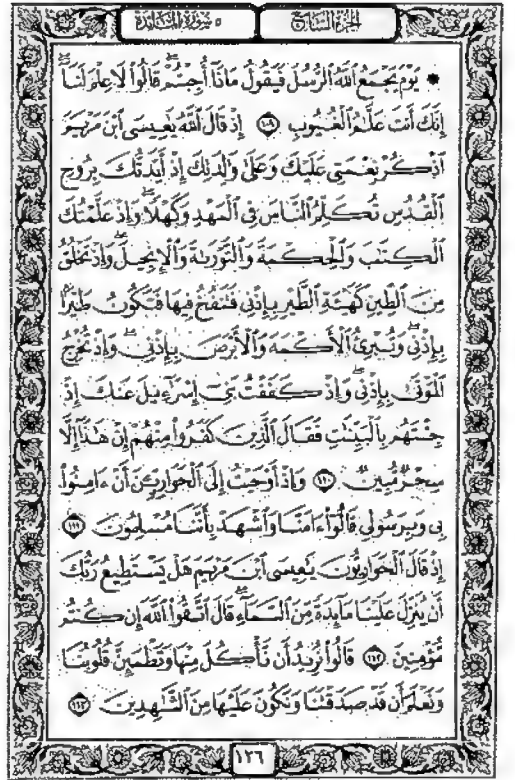 الجزء السابع ٥ سورة المائدة
۞ يَوْمَ يَجْمَعُ ٱللَّهُ ٱلرُّسُلَ فَيَقُولُ مَاذَآ أُجِبْتُمْ ۖ قَالُوا۟ لَا عِلْمَ لَنَآ ۖ
إِنَّكَ أَنتَ عَلَّـٰمُ ٱلْغُيُوبِ ١٠٩ إِذْ قَالَ ٱللَّهُ يَـٰعِيسَى ٱبْنَ مَرْيَمَ
ٱذْكُرْ نِعْمَتِى عَلَيْكَ وَعَلَىٰ وَٰلِدَتِكَ إِذْ أَيَّدتُّكَ بِرُوحِ
ٱلْقُدُسِ تُكَلِّمُ ٱلنَّاسَ فِى ٱلْمَهْدِ وَكَهْلًا ۖ وَإِذْ عَلَّمْتُكَ
ٱلْكِتَـٰبَ وَٱلْحِكْمَةَ وَٱلتَّوْرَىٰةَ وَٱلْإِنجِيلَ ۖ وَإِذْ تَخْلُقُ
مِنَ ٱلطِّينِ كَهَيْـَٔةِ ٱلطَّيْرِ بِإِذْنِى فَتَنفُخُ فِيهَا فَتَكُونُ طَيْرًۢا
بِإِذْنِى ۖ وَتُبْرِئُ ٱلْأَكْمَهَ وَٱلْأَبْرَصَ بِإِذْنِى ۖ وَإِذْ تُخْرِجُ
ٱلْمَوْتَىٰ بِإِذْنِى ۖ وَإِذْ كَفَفْتُ بَنِىٓ إِسْرَٰٓءِيلَ عَنكَ إِذْ
جِئْتَهُم بِٱلْبَيِّنَـٰتِ فَقَالَ ٱلَّذِينَ كَفَرُوا۟ مِنْهُمْ إِنْ هَـٰذَآ إِلَّا
سِحْرٌ مُّبِينٌ ١١٠ وَإِذْ أَوْحَيْتُ إِلَى ٱلْحَوَارِيِّـۧنَ أَنْ ءَامِنُوا۟
بِى وَبِرَسُولِى قَالُوٓا۟ ءَامَنَّا وَٱشْهَدْ بِأَنَّنَا مُسْلِمُونَ ١١١
إِذْ قَالَ ٱلْحَوَارِيُّونَ يَـٰعِيسَى ٱبْنَ مَرْيَمَ هَلْ يَسْتَطِيعُ رَبُّكَ
أَن يُنَزِّلَ عَلَيْنَا مَآئِدَةً مِّنَ ٱلسَّمَآءِ ۖ قَالَ ٱتَّقُوا۟ ٱللَّهَ إِن كُنتُم
مُّؤْمِنِينَ ١١٢ قَالُوا۟ نُرِيدُ أَن نَّأْكُلَ مِنْهَا وَتَطْمَئِنَّ قُلُوبُنَا
وَنَعْلَمَ أَن قَدْ صَدَقْتَنَا وَنَكُونَ عَلَيْهَا مِنَ ٱلشَّـٰهِدِينَ ١١٣
١٢٦